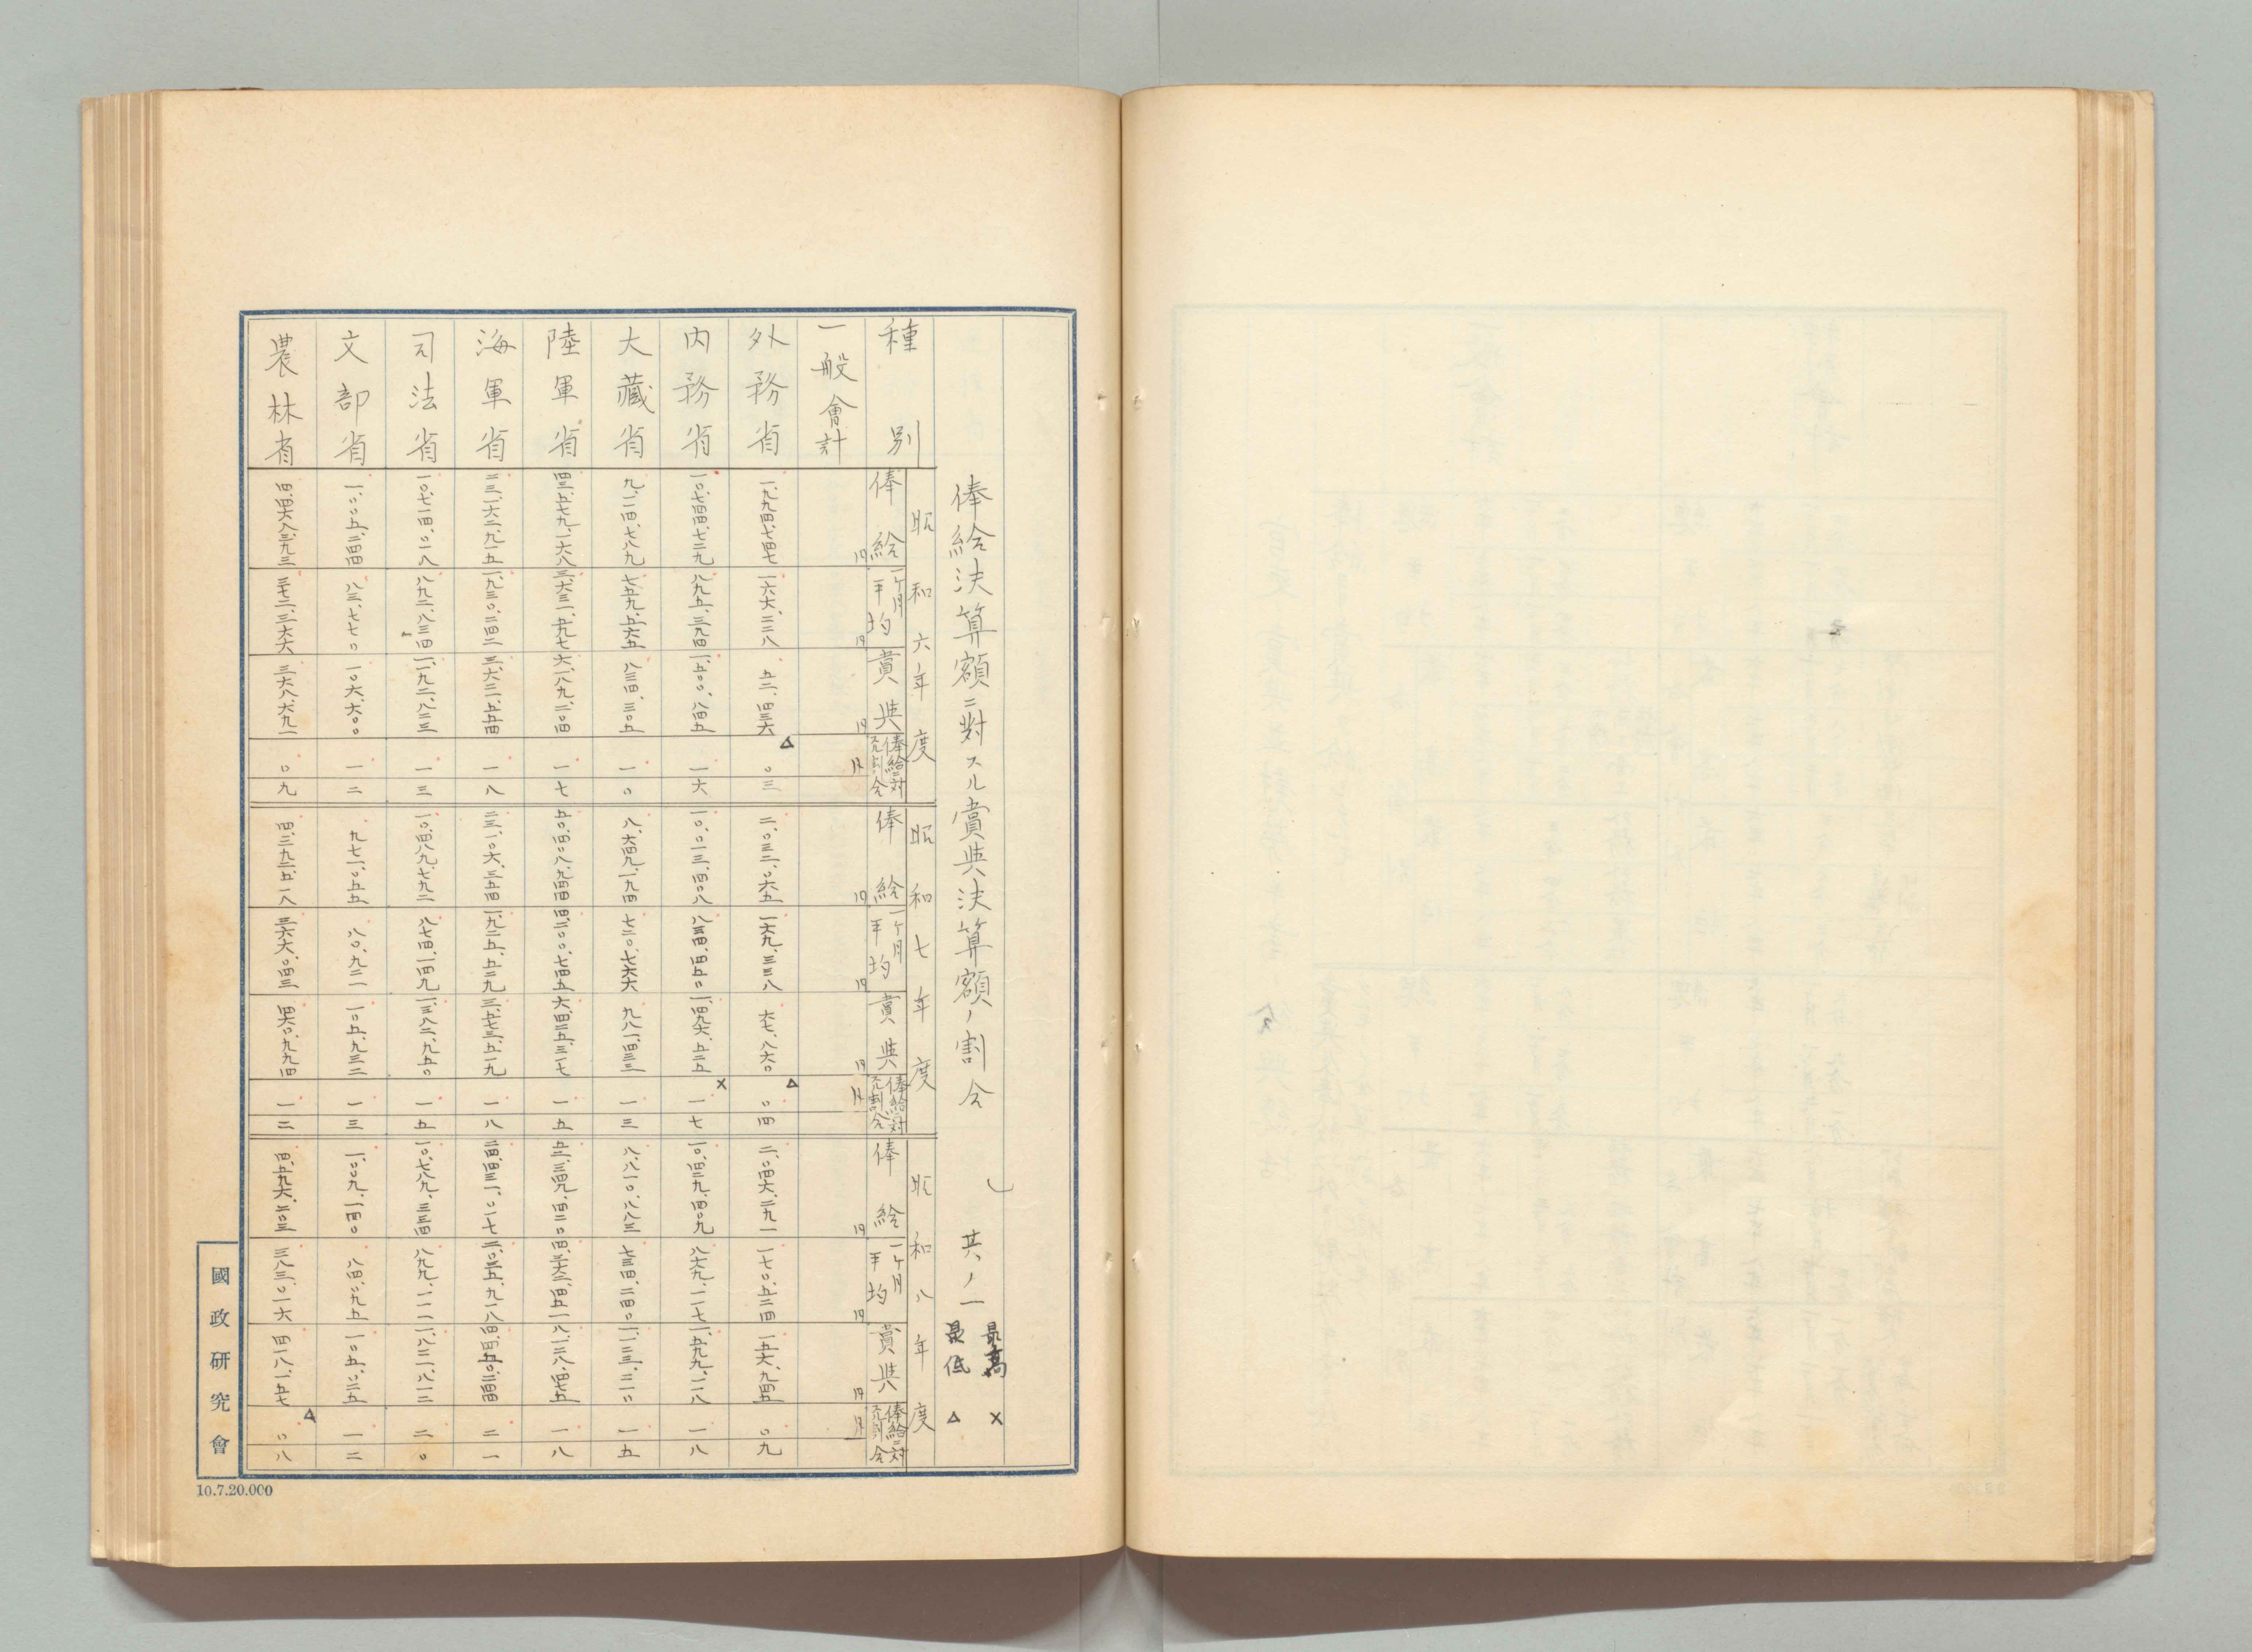 俸給決算額ニ對スル賞與決算額ノ割合 其ノ一
最高 ×
最低 △
昭和六年度 昭和七年度 昭和八年度
種別 俸給 一ヶ月平均 賞與 俸給ニ対スル割合 俸給 一ヶ月平均 賞與 俸給ニ対スル割合 俸給 一ヶ月平均 賞與 俸給ニ対スル割合
一般會計 円 円 円 月 円 円 円 月 円 円 円 月
外務省 一、九九四、七四七 一六六、二二八 五二、四三六 △ 〇三 二、〇三二、〇六五 一六九、三三八 六七、八六〇 △ 〇四 二、〇四六、二九一 一七〇、五二四 一五六、九四五 〇九
内務省 一〇、七四四、七二九 八九五、三九四 一、五〇〇、八四五 一六 一〇、〇一三、四〇八 八三四、四五〇 一、四九六、五二五 × 一七 一〇、四二九、四〇九 八六九、一一七 一、五九九、一二八 一八
大藏省 九、一一四、七八九 七五九、五六五 八三四、三〇五 一〇 八、六四九、一九四 七二〇、七六六 九八一、四三三 一三 八、八一〇、八八三 七三四、二四〇 一、一二三、二一〇 一五
陸軍省 四三、五七九、一六八 三、六三一、五九七 六、一八九、二〇四 一七 五〇、四〇八、九四四 四、二〇〇、七四五 六、四二五、三一七 一五 五二、三四九、四二〇 四、三六二、四五一 八、一二八、四七五 一八
海軍省 二三、一六二、九一五 一、九三〇、二四二 三、六三二、五五四 一八 二三、一〇六、三五四 一、九二五、五二九 三、五七三、五一九 一八 二四、四三一、〇一七 二、〇三五、九一八 四、四五〇、二四四 二一
司法省 一〇、七一四、〇一八 八九二、八三四 一、一九二、八二三 一三 一〇、四八九、七九二 八七四、一四九 一、三八二、九五〇 一五 一〇、七八九、三三四 八九九、一一一 一、八二一、八一二 二〇
文部省 一、〇〇五、二四四 八三、七七〇 一〇六、六〇〇 一二 九七一、〇五五 八〇、九二一 一〇五、九三二 一三 一、〇〇九、一四〇 八四、〇九五 一〇五、〇二五 一二
農林省 四、四六八、三九三 三七二、三六六 三六八、六九一 〇九 四、三九二、五一八 三六六、〇四三 四六〇、九九四 一二 四、五九六、二〇三 三八三、〇一六 四一八、一五七 △ 〇八
國政研究會
10.7.20.000